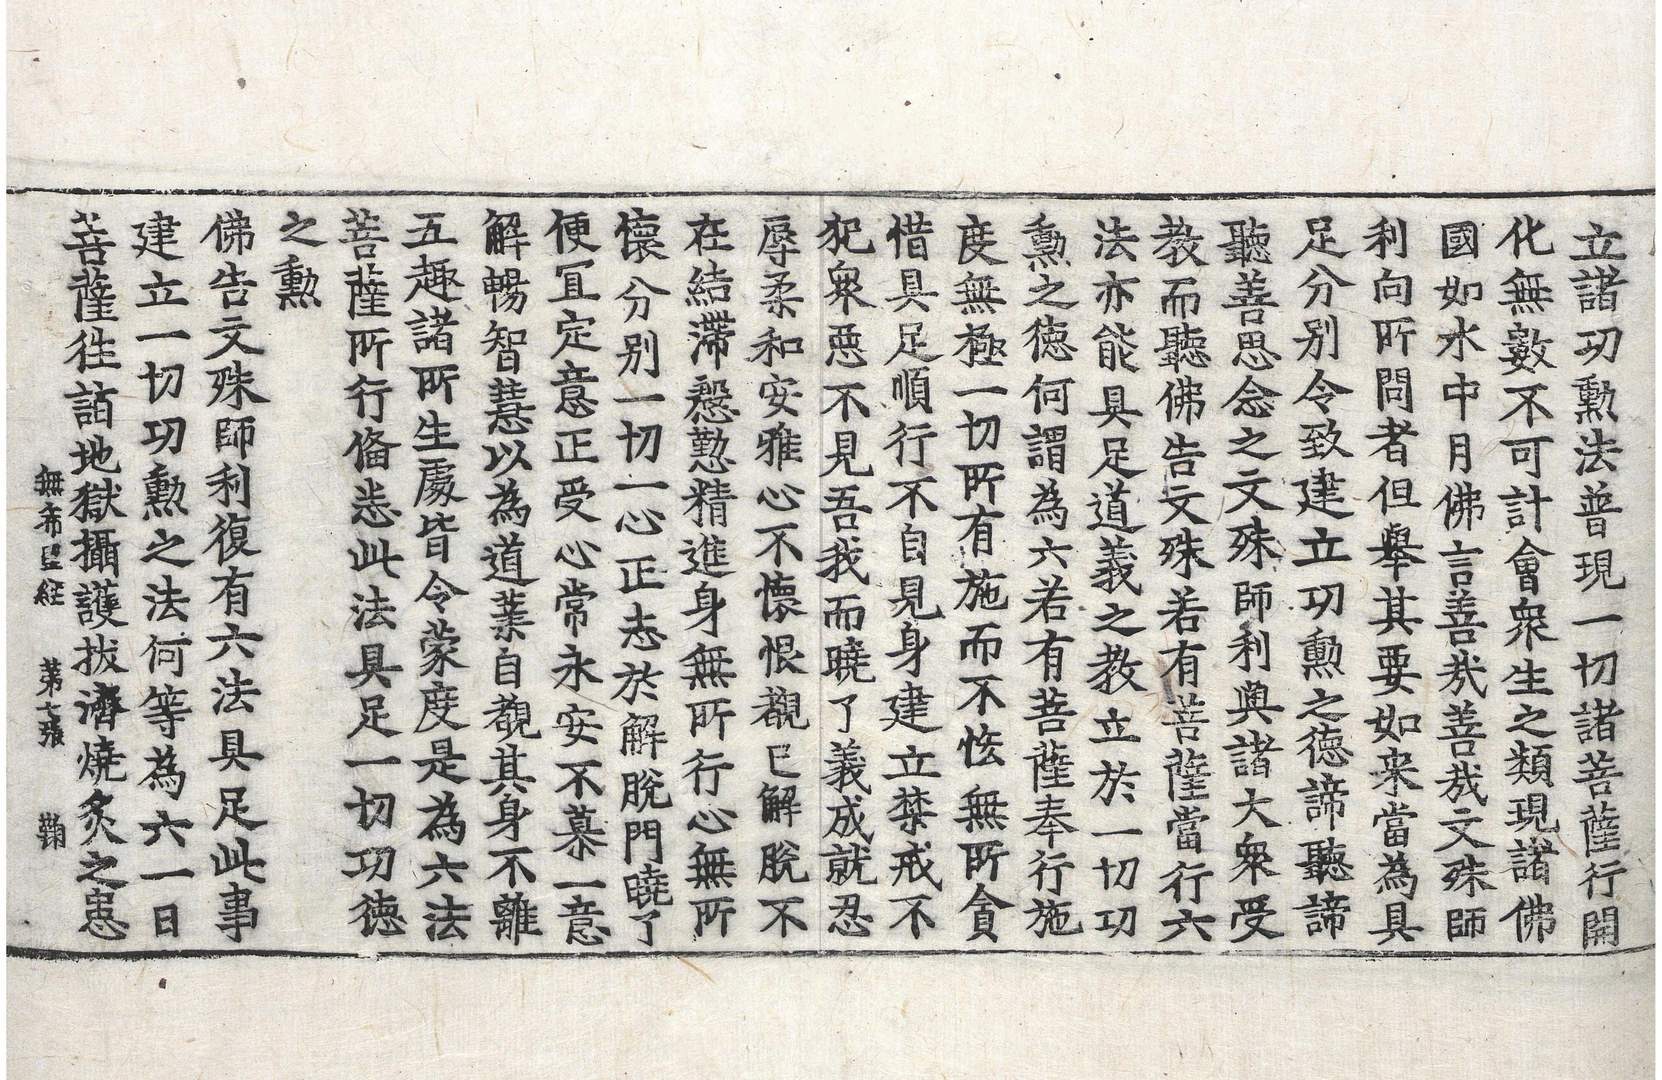 立諸功勳法普現一切諸菩薩行開
化無數不可計會衆生之類現諸佛
國如水中月佛言善㢤善㢤文殊師
利向所問者但舉其要如来當為具
足分别令致建立功勳之德諦聽諦
聽善思念之文殊師利與諸大衆受
教而聽佛告文殊若有菩薩當行六
法亦能具足道義之教立於一切功
勳之德何謂為六若有菩薩奉行施
度無極一切所有施而不恡無所貪
惜具足順行不自見身建立禁戒不
犯衆惡不見吾我而曉了義成就忍
辱柔和安雅心不懷恨觀已解脫不
在結滯慇懃精進身無所行心無所
懷分别一切一心正志於解脫門曉了
便冝定意正受心常永安不慕一意
解暢智慧以為道業自觀其身不離
五趣諸所生處皆令蒙度是為六法
菩薩所行俻悉此法具足一切功德
之勳
佛告文殊師利復有六法具足此事
建立一切功勳之法何等為六一曰
菩薩往詣地獄攝護拔濟燒炙之患
無希望經 第七張 鞠